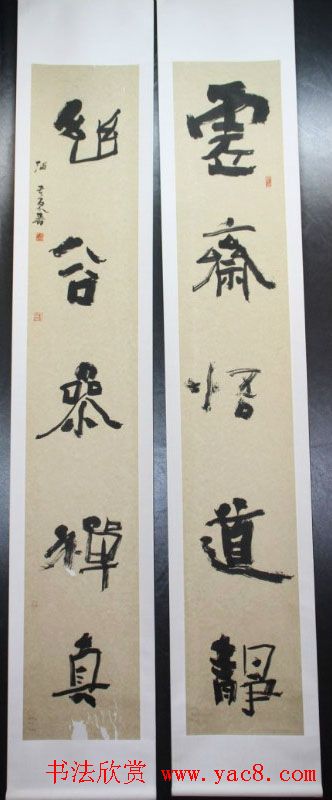 虛齋悟道靜
幽谷參禪真
书法欣赏 www.yac8.com